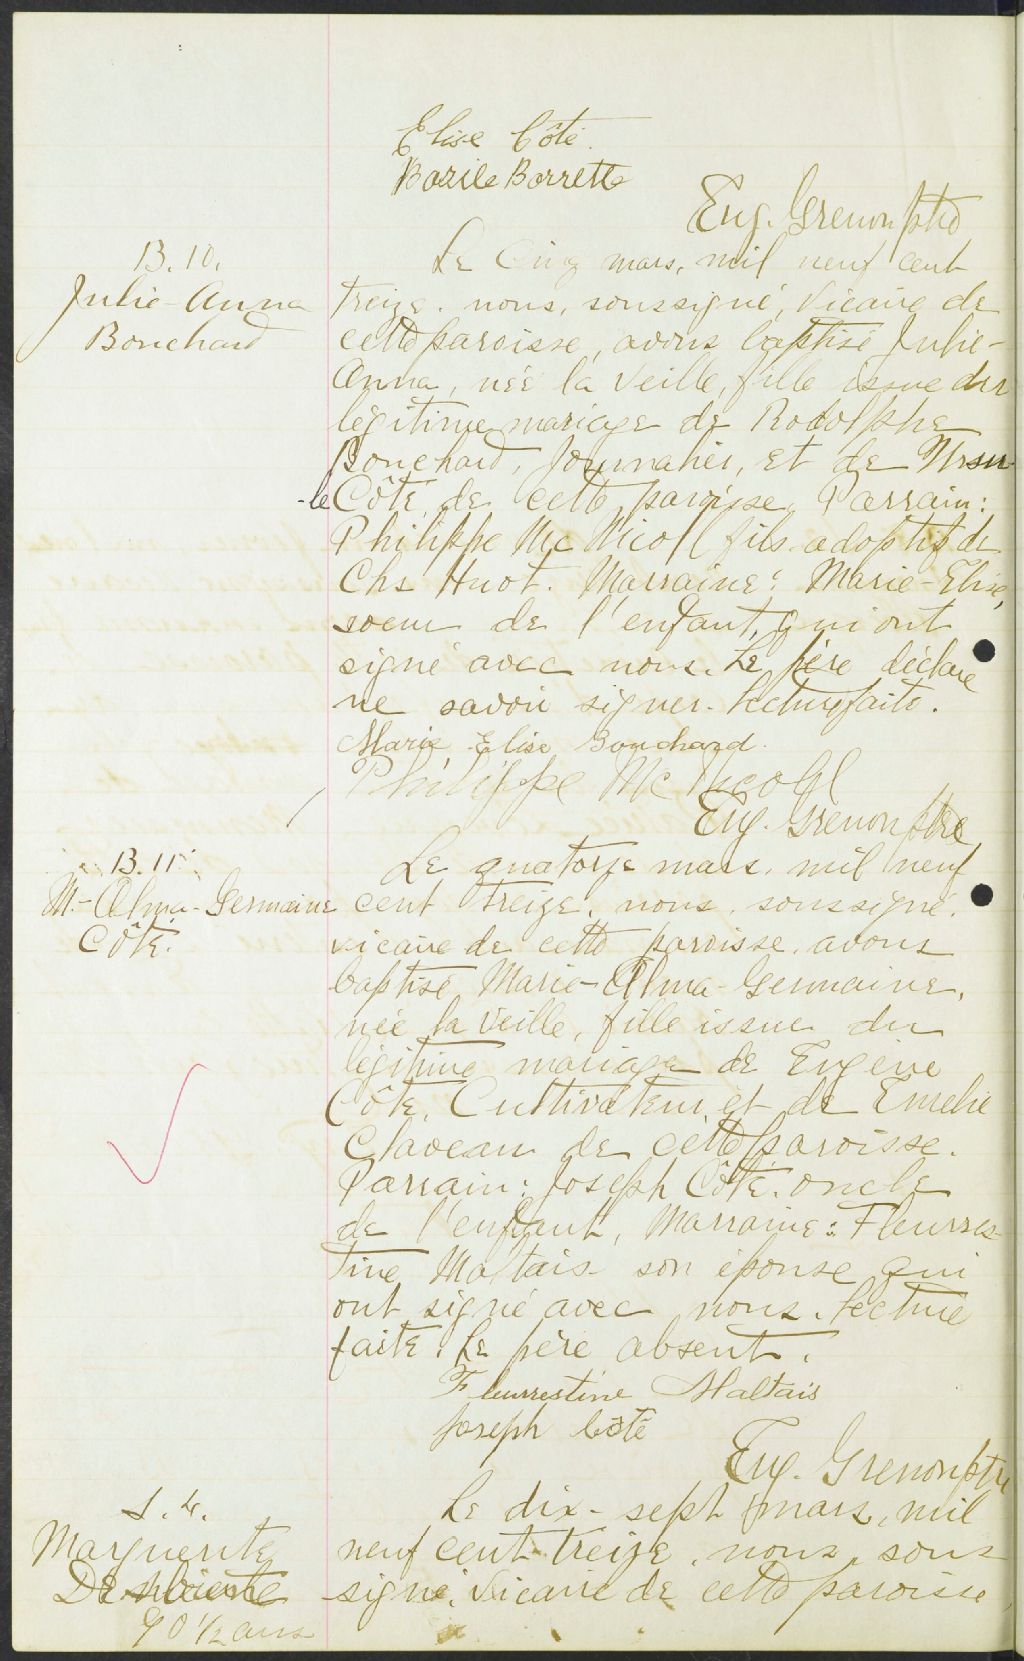 Elise Côté.
Bazile Borrette
Eug. Grenon ptre
B. 10.
Julie-Anna
Bouchard
Le Cinq mars, mil neuf cent
treize. nous, soussigné, Vicaire de
cette paroisse, avons baptisé Julie-
Anna, née la veille, fille issue du
légitime mariage de Rodolphe
Bouchard, Journalier, et de Ursu-
-le Côté, de cette paroisse. Parrain:
Philippe Mc Nicoll fils adoptif de
Chs Huot. Marraine: Marie-Elise,
soeur de l'enfant, qui ont
signé avec nous. Le père déclare
ne savoir signer. Lecture faite.
Marie Elise Bouchard.
Philippe Mc Nicoll
Eug. Grenon ptre
B. 11
M.-Alma-Germaine
Côté.
Le quatorze mars, mil neuf
cent treize, nous, soussigné,
vicaire de cette paroisse, avons
baptisé Marie-Alma-Germaine,
née la veille, fille issue du
légitime mariage de Eugène
Côté, Cultivateur, et de Emélie
Claveau de cette paroisse.
Parrain: Joseph Côté, oncle
de l'enfant, Marraine: Fleurres-
tine Maltais son épouse qui
ont signé avec nous. Lecture
faite. Le père absent.
Fleurrestine Maltais
Joseph Côté
Eug. Grenon ptre
S. 4.
Marguerite
90 1/2 ans
Le dix-sept mars, mil
neuf cent treize, nous, sous
signé, Vicaire de cette paroisse,